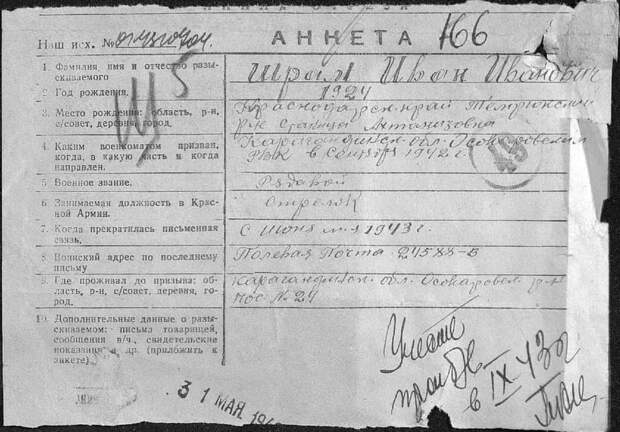 Наш исх. №
АНКЕТА 166
Ш5
1. Фамилия, имя и отчество разы-
скиваемого
Шрам Иван Иванович
2. Год рождения.
1924
3. Место рождения: область, р-н,
с/совет, деревня, город.
край Темрюкский
р-н Станица
4. Каким военкоматом призван,
когда, в какую часть и когда
направлен.
обл. Осокаровским
РВК в 1942 г.
5. Военное звание.
Рядовой
6. Занимаемая должность в Крас-
ной Армии.
Стрелок
7. Когда прекратилась письменная
связь.
С июня м-ц 1943 г.
8. Воинский адрес по последнему
письму
Полевая Почта 24588-Б
9. Где проживал до призыва: об-
ласть, р-н, с/совет, деревня, го-
род.
обл. Осокаровск. р-н
пос № 24
10. Дополнительные данные о разы-
скиваемом: письмо товарищей,
сообщения в/ч, свидетельские
показания и др. (приложить к
анкете).
в IX 43 г
31 МАЯ